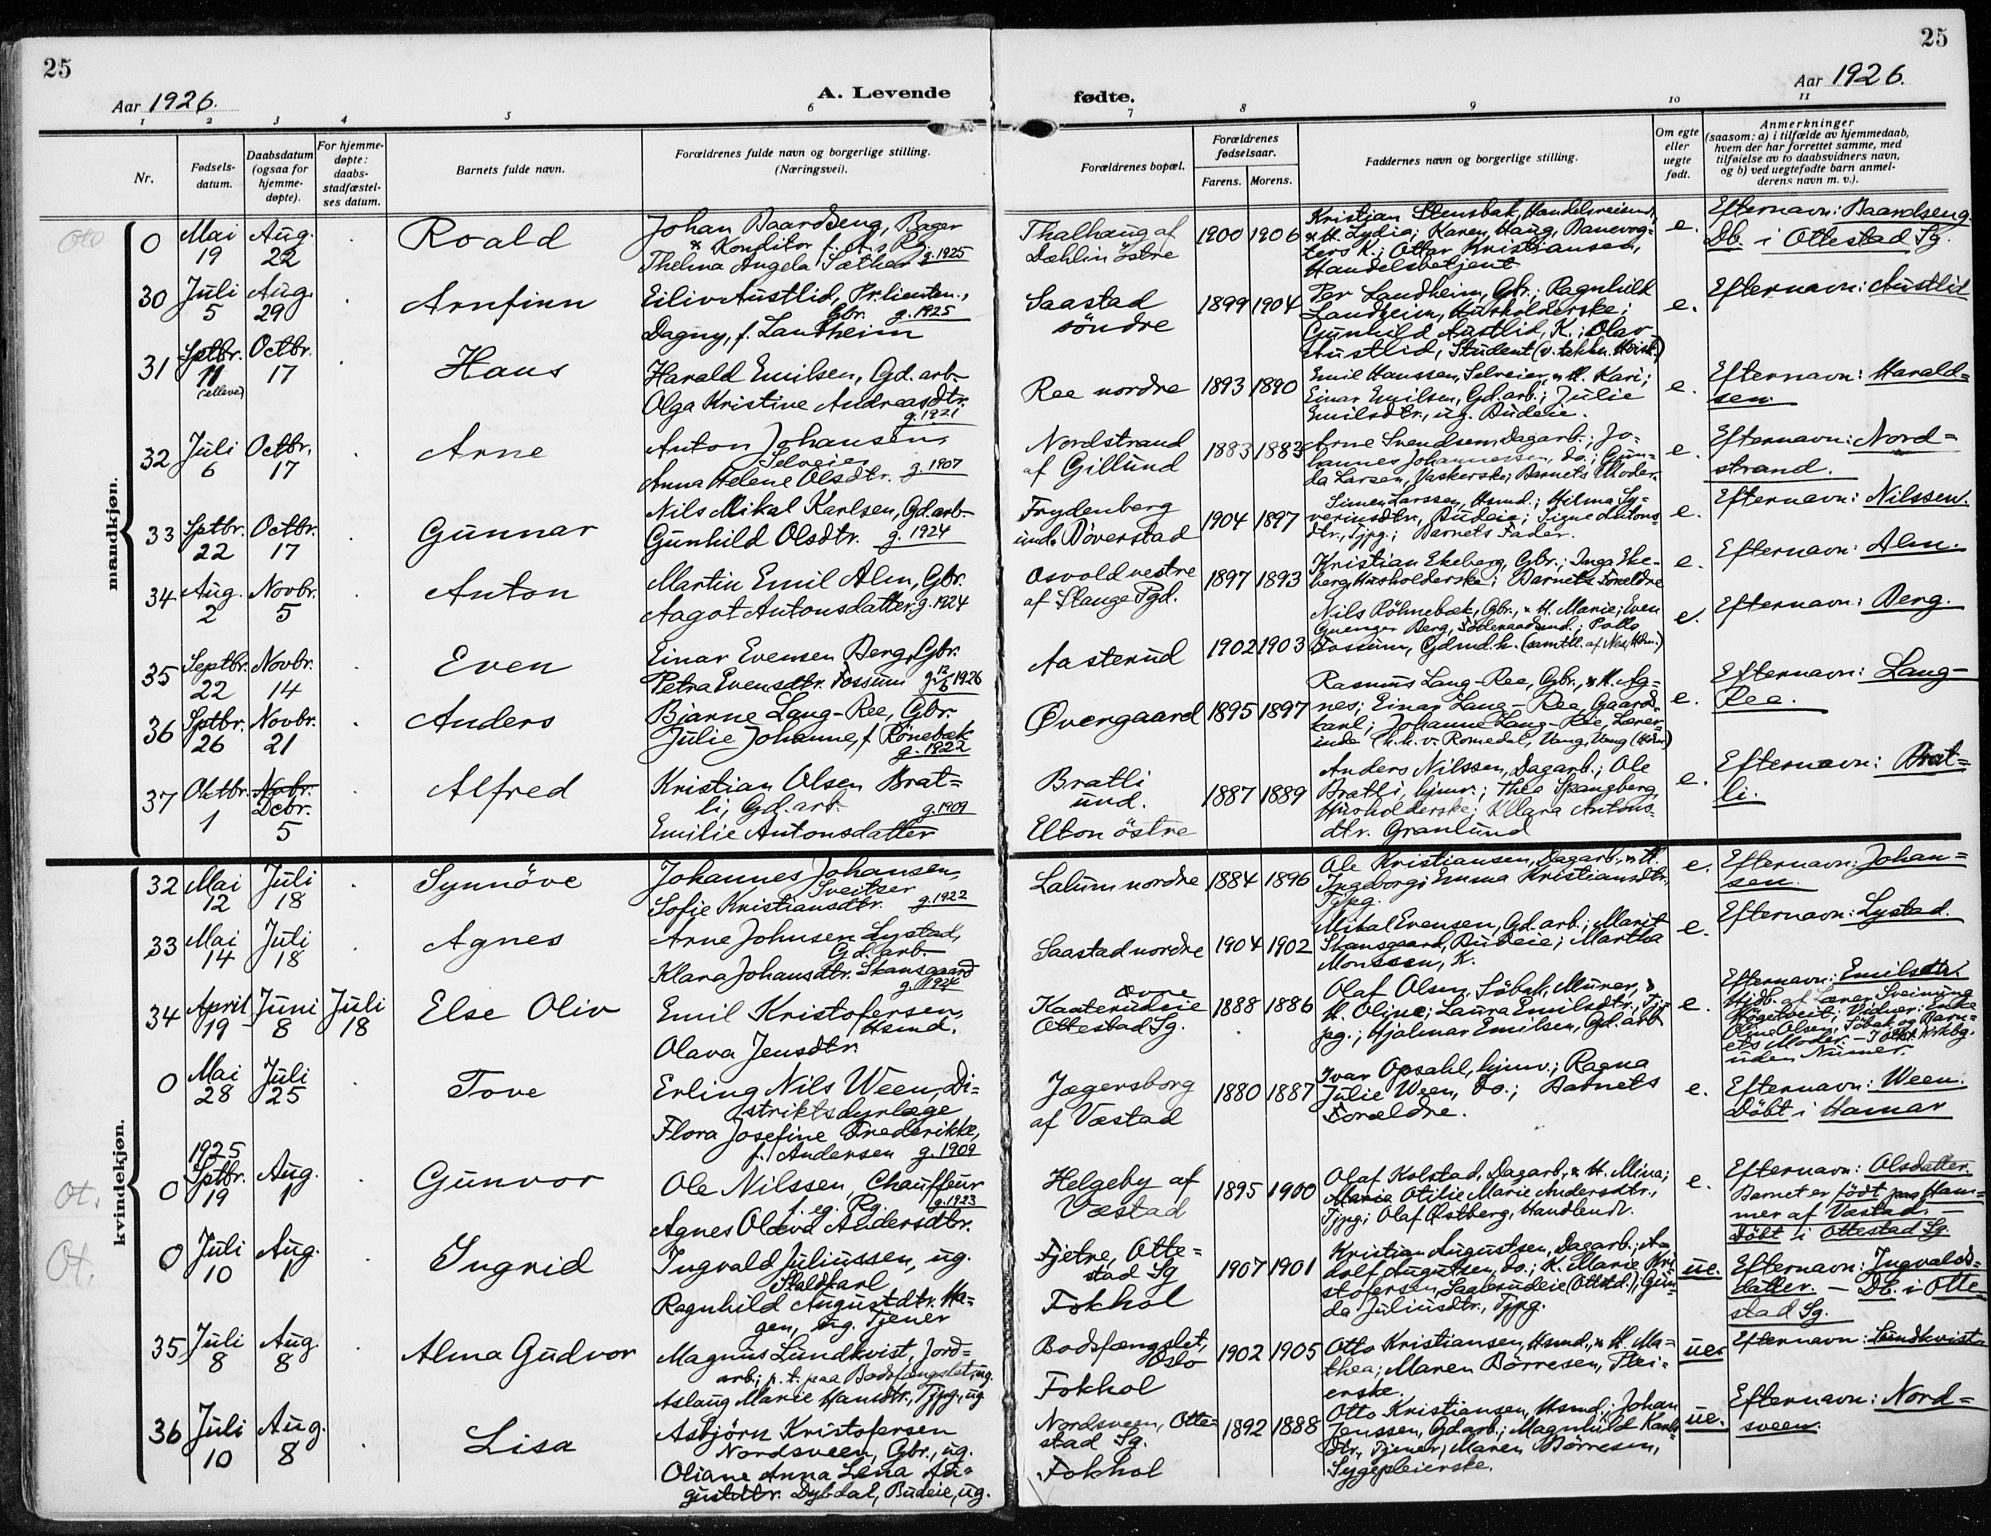 25
25
Aar 1926.
A. Levende
fødte.
Aar 1926.
1 2 3 4 5 6 7 8 9 10 11
Nr.
Fødsels-
datum.
Daabsdatum
(ogsaa for
hjemme-
døpte).
For hjemme-
døpte:
daabs-
stadfæstel-
ses datum.
Barnets fulde navn.
Forældrenes fulde navn og borgerlige stilling.
(Næringsvei).
Forældrenes bopæl.
Forældrenes
fødselsaar.
Farens. Morens.
Faddernes navn og borgerlige stilling.
Om egte
eller
uegte
født.
Anmerkninger
(saasom: a) i tilfælde av hjemmedaab,
hvem der har forrettet samme, med
tilføielse av to daabsvidners navn,
og b) ved uegtefødte barn anmel-
derens navn m. v.).
mandkjøn.
0
Mai
19
Aug.
22
Roald
Johan Baardseng, Bager
& Konditor
Thelma Angela Sæther g. 1925
Thalhaug af
Dæhlin östre
1900 1906
Kristian Stensbak, Handelsreisend,
& H. Lydia; Karen Haug, Banevog-
ters K.; Ottar Kristiansen,
Handelsbetjent
e.
Efternavn: Baardseng.
Db. i Ottestad Sg.
30
Juli
5
Aug.
29
Arnfinn
Eiliv Austlid, Pr.lieuten.,
Gbr. g. 1925
Dagny, f. Landheim
Saastad
söndre
1899 1904
Per Landheim, Gbr.; Ragnhild
Landheim, Husholderske;
Gunhild Austlid, K.; Olav
Austlid, Student
e.
Efternavn: Austlid
31
Sptbr.
11
(elleve)
Octbr.
17
Hans
Harald Emilsen, Gd. arb.
Olga Kristine Andreasdtr.
g. 1921
Ree nordre
1893 1890
Emil Hanssen, Selveier, & H. Kari;
Einar Emilsen, Gd. arb.; Julie
Emilsdtr., ug. Budeie.
e.
Efternavn: Harald-
sen.
32
Juli
6
Octbr.
17
Arne
Anton Johansen,
Selveier g. 1907
Anna Helene Olsdtr.
Nordstrand
af Gillund
1883 1883
Arne Svendsen, Dagarb.; Jo-
hannes Johannessen, do.; Gun-
da Larsen, Vaskerske; Barnets Moder.
e.
Efternavn: Nord-
strand.
33
Sptbr.
22
Octbr.
17
Gunnar
Nils Mikal Karlsen, Gd. arb.
Gunhild Olsdtr. g. 1924
Frydenberg
und. Döverstad
1904 1897
Simen Larssen, Hsmd.; Hilma Sy-
verinsdtr., Budeie; Signe Antons-
dtr., Tjpg.; Barnets Fader.
e.
Efternavn: Nilssen.
34
Aug.
2
Novbr.
5
Anton
Martin Emil Alm, Gbr.
Aagot Antonsdatter g. 1924
Osvold vestre
af Stange Pgd.
1897 1893
Kristian Ekeberg, Gbr.; Inga Eke-
berg, Husholderske; Barnets Foreldre
e.
Efternavn: Alm.
35
Septbr.
22
Novbr.
14
Even
Einar Evensen Berg, Gbr.
Petra Evensdtr. Fossum g. 12/6 1926
Aasterud
1902 1903
Nils Röhnebæk, Gbr., & H. Marie; Even
Berg, Palle
Fossum, Gdmd.
e.
Efternavn: Berg.
36
Sptbr.
26
Novbr.
21
Anders
Bjarne Lang-Ree, Gbr.
Julie Johanne, f. Rönebæk
g. 1922
Övergaard
1895 1897
Rasmus Lang-Ree, Gbr., & H. Ag-
nes; Einar Lang-Ree, Gaard-
karl; Johanne Lang-Ree, Lærer-
inde
e.
Efternavn: Lang-
Ree.
37
Oktbr.
1
Novbr.
Dcbr.
5
Alfred
Kristian Olsen Brat-
li, Gd. arb. g. 1909
Emilie Antonsdatter
Bratli
und.
Elton östre
1887 1889
Anders Nilssen, Dagarb.; Ole
Bratli, hjmv.; Thea Spangberg,
Husholderske; Klara Antons-
dtr. Granlund
e.
Efternavn: Brat-
li.
kvindekjøn.
32
Mai
12
Juli
18
Synnöve
Johannes Johansen,
Sveitzer
Sofie Kristiansdtr. g. 1922
Lalum nordre
1884 1896
Ole Kristiansen, Dagarb., & H.
Ingeborg; Emma Kristiansdtr.
Tjpg.
e.
Efternavn: Johan-
sen.
33
Mai
14
Juli
18
Agnes
Arne Johnsen Lystad,
Gd. arb.
Klara Johansdtr. Skansgaard
g. 1924
Saastad nordre
1904 1902
Mikal Evensen, Gd. arb.; Marit
Skansgaard, Budeie; Martha
Monssen, K.
e.
Efternavn: Lystad.
34
April
19
Juni
8
Juli
18
Else Oliv
Emil Kristofersen,
Hsmd.
Olava Jensdtr.
övre
Kaaterudeie
Ottestad Sg.
1888 1886
Olaf Olsen Söbak, Murer, &
H. Oline; Laura Emilsdtr., Tj-
pg.; Hjalmar Emilsen, Gd. arb.
e.
Efternavn: Emilsdtr.
Hjdb. af Lærer Sveinung
Högetveit; Vidner: Enke
Oline Olsen, Söbak og Barn-
ets Moder.
uden Numer.
0
Mai
28
Juli
25
Tove
Erling Nils Ween, Di-
striktsdyrlæge,
Flora Josefine Frederikke,
f. Andersen g. 1909
Jægersborg
af Væstad
1880 1887
Ivar Opsahl, hjmv.; Ragna
Julie Ween, do.; Barnets
Forældre.
e.
Efternavn: Ween.
Döbt i Hamar
Ot.
0
1925
Sptbr.
19
Aug.
1
Gunvor
Ole Nilssen, Chauffeur
f. eg. Rg. g. 1923
Agnes Oleva Andersdtr.
Helgeby af
Væstad
1895 1900
Olaf Kolstad, Dagarb., & H. Mina;
Marie Otilie Marie Andersdtr.,
Tjpg; Olaf Östberg, Handlende.
e.
Efternavn: Olsdatter.
Barnet er födt paa Ham-
mer af Væstad. —
Döbt i Ottestad Sg.
Ot.
0
Juli
10
Aug.
1
Ingrid
Ingvald Juliussen, ug.
Staldkarl
Ragnhild Augustdtr. Ha-
gen, ug. Tjener
Fjetre, Otte-
stad Sg.
Fokhol
1907 1901
Kristian Augustsen, Dagarb.; A-
dolf Augustsen, do.; K. Marie Kri-
stofersen, Sagerudeie (Ottstd.); Gun-
da Juliusdtr., Tjpg.
ue.
Efternavn: Ingvalds-
datter. — Db. i Otte-
stad Sg.
35
Juli
8
Aug.
8
Alma Gudvor
Magnus Lundkvist, Jord-
arb.; p. t. paa Bodsfængslet, ug.
Aslaug Marie Hansdtr., Tjpg., ug
Bodsfængslet,
Oslo
Fokhol
1902 1905
Otto Kristiansen, Hsmd., & H. Ma-
thea; Maren Börresen, Plei-
erske.
ue.
Efternavn: Lundkvist.
36
Juli
10
Aug.
8
Lisa
Asbjörn Kristofersen
Nordsveen, Gbr., ug.
Oliane Anna Lena Au-
gustdtr. Dybdal, Budeie, ug.
Nordsveen, Otte-
stad Sg.
Fokhol
1892 1888
Otto Kristiansen, Hsmd.; Johan
Jenssen, Gdarb.; Magnhild Karls-
dtr., Tjener; Maren Börresen,
Sygepleierske.
ue.
Efternavn: Nord-
sveen.